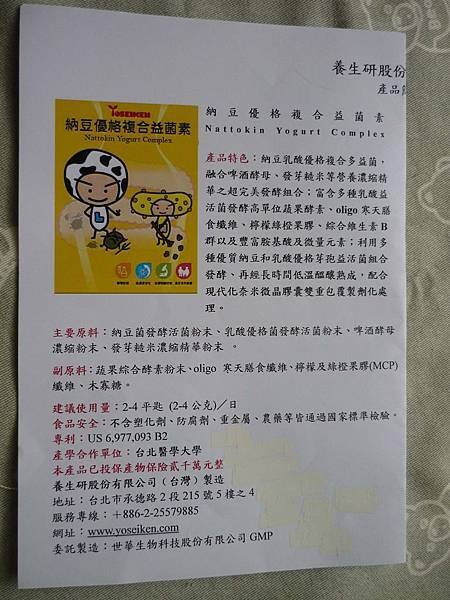 養生研股份
產品簡
YOSEIKEN
納豆優格複合益菌素
Nattokin Yogurt Complex
納豆優格複合益菌素
Nattokin Yogurt Complex
產品特色：納豆乳酸優格複合多益菌，
融合啤酒酵母、發芽糙米等營養濃縮精
華之超完美發酵組合；富含多種乳酸益
活菌發酵高單位蔬果酵素、oligo 寒天膳
食纖維、檸檬綠橙果膠、綜合維生素 B
群以及豐富胺基酸及微量元素；利用多
種優質納豆和乳酸優格芽孢益活菌組合
發酵、再經長時間低溫醞釀熟成，配合
現代化奈米微晶膠囊雙重包覆製劑化處
理。
主要原料：納豆菌發酵活菌粉末、乳酸優格菌發酵活菌粉末、啤酒酵母
濃縮粉末、發芽糙米濃縮精華粉末 。
副原料：蔬果綜合酵素粉末、oligo 寒天膳食纖維、檸檬及綠橙果膠(MCP)
纖維、木寡糖。
建議使用量：2-4 平匙 (2-4 公克)／日
食品安全：不含塑化劑、防腐劑、重金屬、農藥等皆通過國家標準檢驗。
專利：US 6,977,093 B2
產學合作單位：台北醫學大學
本產品已投保產物保險貳千萬元整
養生研股份有限公司（台灣）製造
地址：台北市承德路 2 段 215 號 5 樓之 4
服務專線：＋886-2-25579885
網址：www.yoseiken.com
委託製造：世華生物科技股份有限公司 GMP